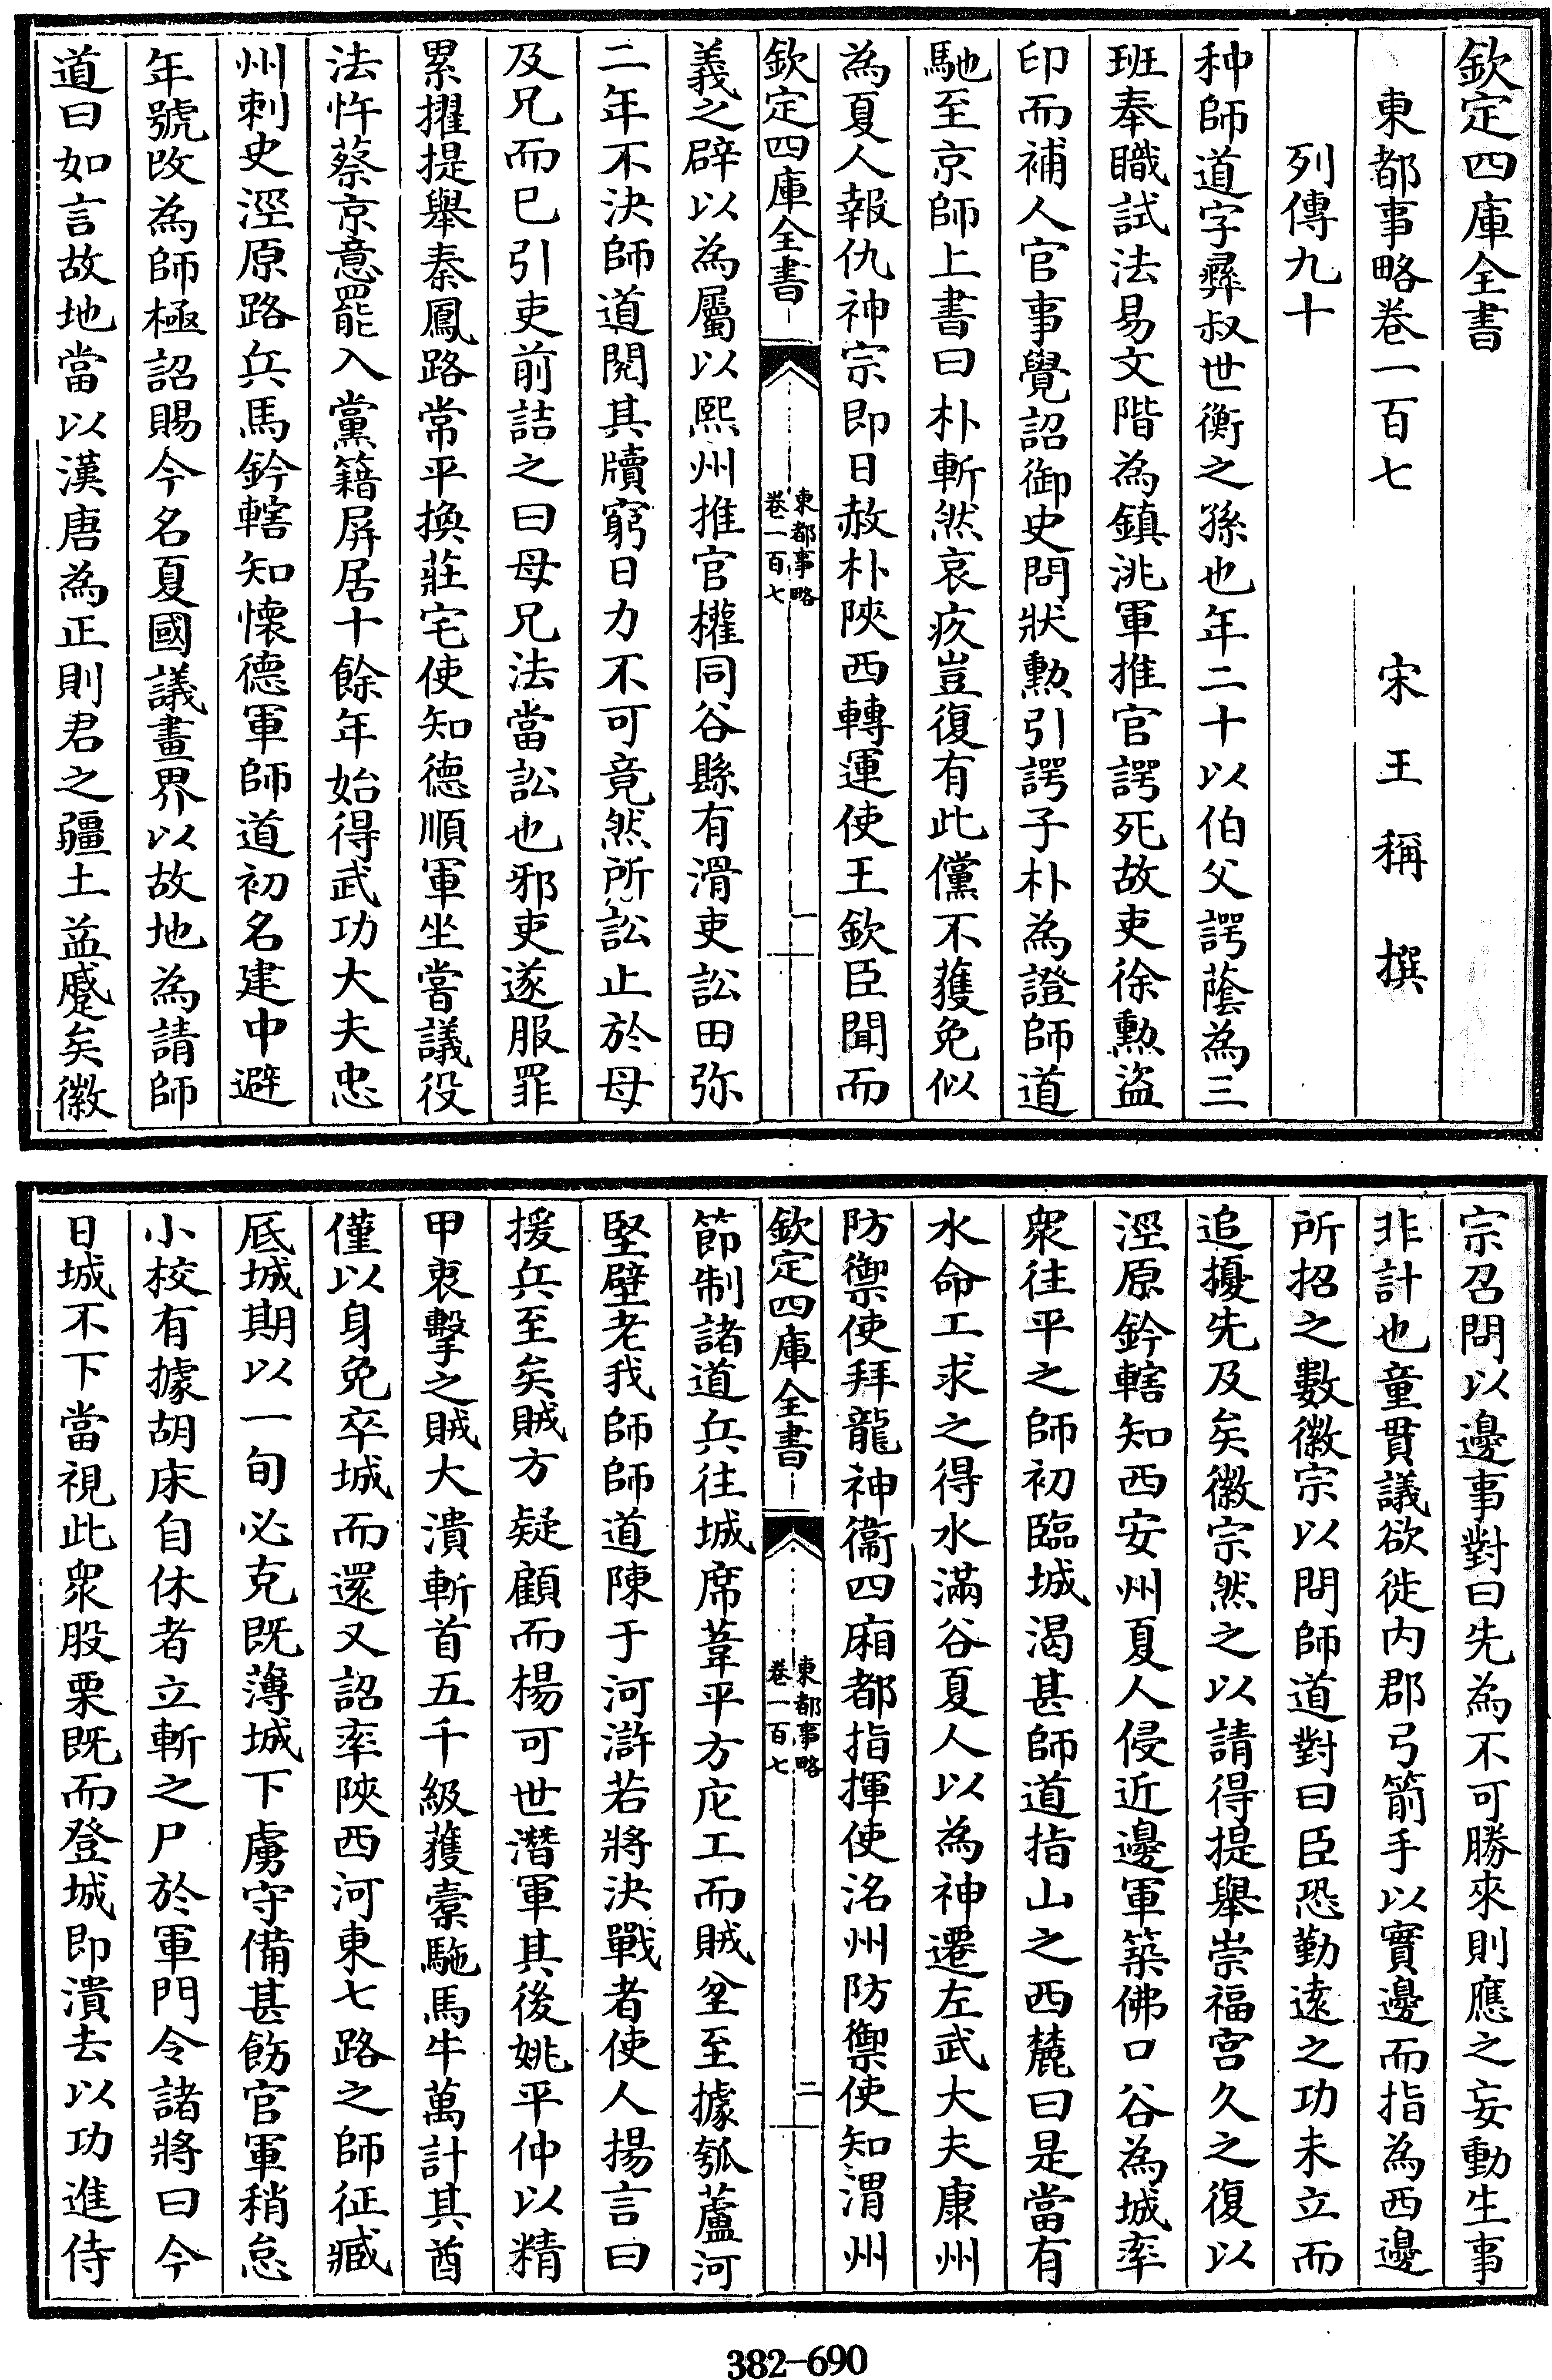 欽定四庫全書
東都事略卷一百七　宋　王　稱　撰
列傳九十
种師道字彛叔世衡之孫也年二十以伯父諤蔭為三
班奉職試法易文階為鎮洮軍推官諤死故吏徐勲盜
印而補人官事覺詔御史問狀勲引諤子朴為證師道
馳至京師上書曰朴斬然哀疚豈復有此儻不獲免似
為夏人報仇神宗即日赦朴陜西轉運使王欽臣聞而
欽定四庫全書
東都事略
卷一百七
一
義之辟以為屬以熙州推官權同谷縣有滑吏訟田弥
二年不決師道閱其牘窮日力不可竟然所訟止於母
及兄而已引吏前詰之曰母兄法當訟也邪吏遂服罪
累擢提舉秦鳳路常平換莊宅使知德順軍坐嘗議役
法忤蔡京意罷入黨籍屏居十餘年始得武功大夫忠
州刺史涇原路兵馬鈐轄知懷德軍師道初名建中避
年號改為師極詔賜今名夏國議畫界以故地為請師
道曰如言故地當以漢唐為正則君之疆土益蹙矣徽
宗召問以邊事對曰先為不可勝來則應之妄動生事
非計也童貫議欲徙内郡弓箭手以實邊而指為西邊
所招之數徽宗以問師道對曰臣恐勤逺之功未立而
追擾先及矣徽宗然之以請得提舉崇福宫久之復以
涇原鈐轄知西安州夏人侵近邊軍築佛口谷為城率
衆往平之師初臨城渴甚師道指山之西麓曰是當有
水命工求之得水滿谷夏人以為神遷左武大夫康州
防禦使拜龍神衞四廂都指揮使洺州防禦使知渭州
欽定四庫全書
東都事略
卷一百七
二
節制諸道兵往城席葦平方庀工而賊坌至據瓠蘆河
堅壁老我師師道陳于河滸若將決戰者使人揚言曰
援兵至矣賊方疑顧而楊可世潛軍其後姚平仲以精
甲衷擊之賊大潰斬首五千級獲槖駞馬牛萬計其酋
僅以身免卒城而還又詔率陜西河東七路之師征臧
厎城期以一旬必克既薄城下虜守備甚飭官軍稍怠
小校有據胡床自休者立斬之尸於軍門令諸將曰今
日城不下當視此衆股栗既而登城即潰去以功進侍
382-690